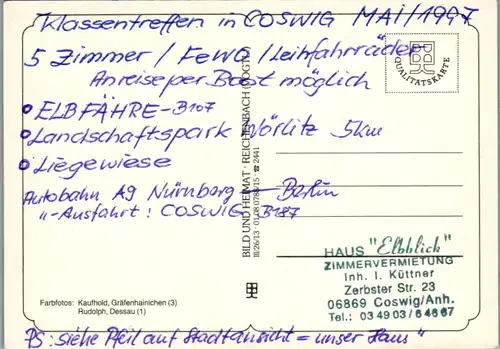 Klassentreffen in COSWIG MAI/1997
5 Zimmer / FeWo / Leihfahrräder
Anreise per Boot möglich
QUALITÄTSKARTE
• ELBFÄHRE-B107
• Landschaftspark Wörlitz 5km
• Liegewiese
Autobahn A9 Nürnberg – Berlin
"-Ausfahrt: COSWIG B187
BILD UND HEIMAT · REICHENBACH (VOGTL)
III/26/13 · 01 08 0786/15 · ☎ 2441
HAUS "Elbblick"
ZIMMERVERMIETUNG
Inh. I. Küttner
Zerbster Str. 23
06869 Coswig/Anh.
Tel.: 03 49 03 / 6 46 67
Farbfotos: Kaufhold, Gräfenhainichen (3)
Rudolph, Dessau (1)
PS: siehe Pfeil auf Stadtansicht = unser Haus"